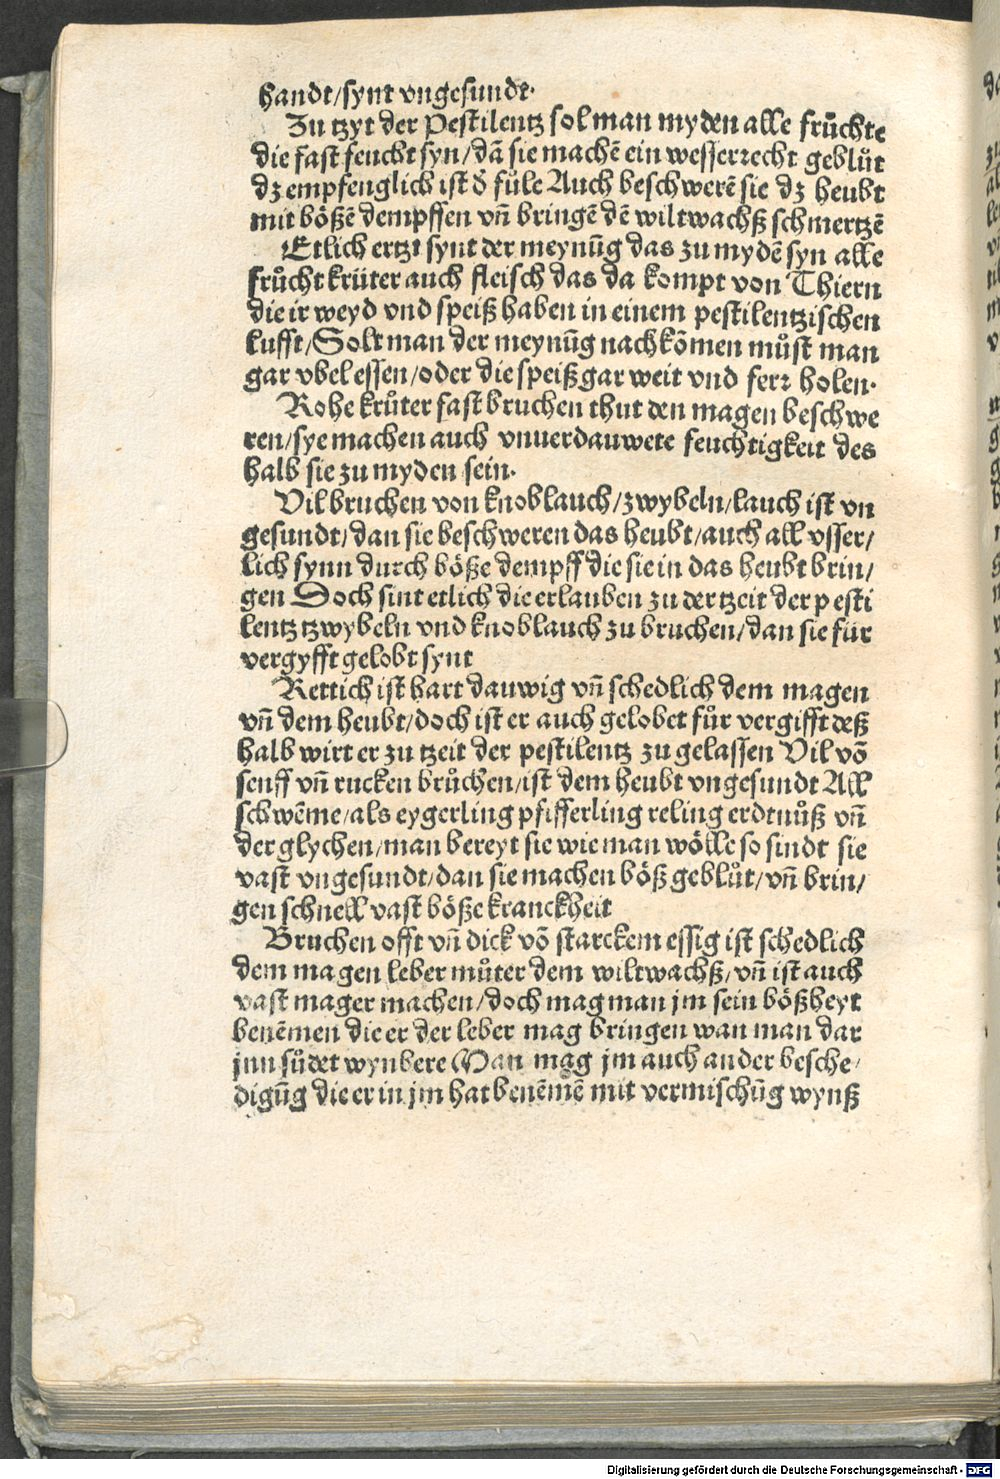 handt/synt vngesundt.
Zu tzyt der Pestilentz sol man myden alle frůchte
die fast feucht syn/dā sie machē ein wesserrecht geblůt
dz empfenglich ist d̄ fůle Auch beschwerē sie dz heubt
mit bößē dempffen vn̄ bringē dē wiltwachß schmertzē
Etlich ertzt synt der meynūg das zu mydē syn alle
frůcht krüter auch fleisch das da kompt von Thiern
die ir weyd vnd speiß haben in einem pestilentzischen
lufft/Solt man der meynūg nachkōmen můst man
gar vbel essen/oder die speiß gar weit vnd ferr holen.
Rohe krůter fast bruchen thut den magen beschwe
ren/sye machen auch vnuerdauwete feuchtigkeit des
halb sie zu myden sein.
Vil bruchen von knoblauch/zwybeln/lauch ist vn
gesundt/dan sie beschweren das heubt/auch all vsser/
lich synn durch böße dempff die sie in das heubt brin/
gen Doch sint etlich die erlauben zu der tzeit der pesti
lentz tzwybeln vnd knoblauch zu bruchen/dan sie für
vergyfft gelobt synt
Rettich ist hart dauwig vn̄ schedlich dem magen
vn̄ dem heubt/doch ist er auch gelobet fůr vergifft deß
halb wirt er zu tzeit der pestilentz zu gelassen Vil vō
senff vn̄ rucken brůchen/ist dem heubt vngesundt All
schwēme/als eygerling pfifferling reling erdtnůß vn̄
der glychen/man bereyt sie wie man wölle so sindt sie
vast vngesundt/dan sie machen böß geblůt/vn̄ brin/
gen schnell vast böße kranckheit
Bruchen offt vn̄ dick vō starckem essig ist schedlich
dem magen leber můter dem wiltwachß/vn̄ ist auch
vast mager machen/doch mag man jm sein bößheyt
benēmen die er der leber mag bringen wan man dar
jnn sůdet wynbere Man mag jm auch ander besche/
digūg die er in jm hat benēmē mit vermischūg wynß
Digitalisierung gefördert durch die Deutsche Forschungsgemeinschaft - DFG